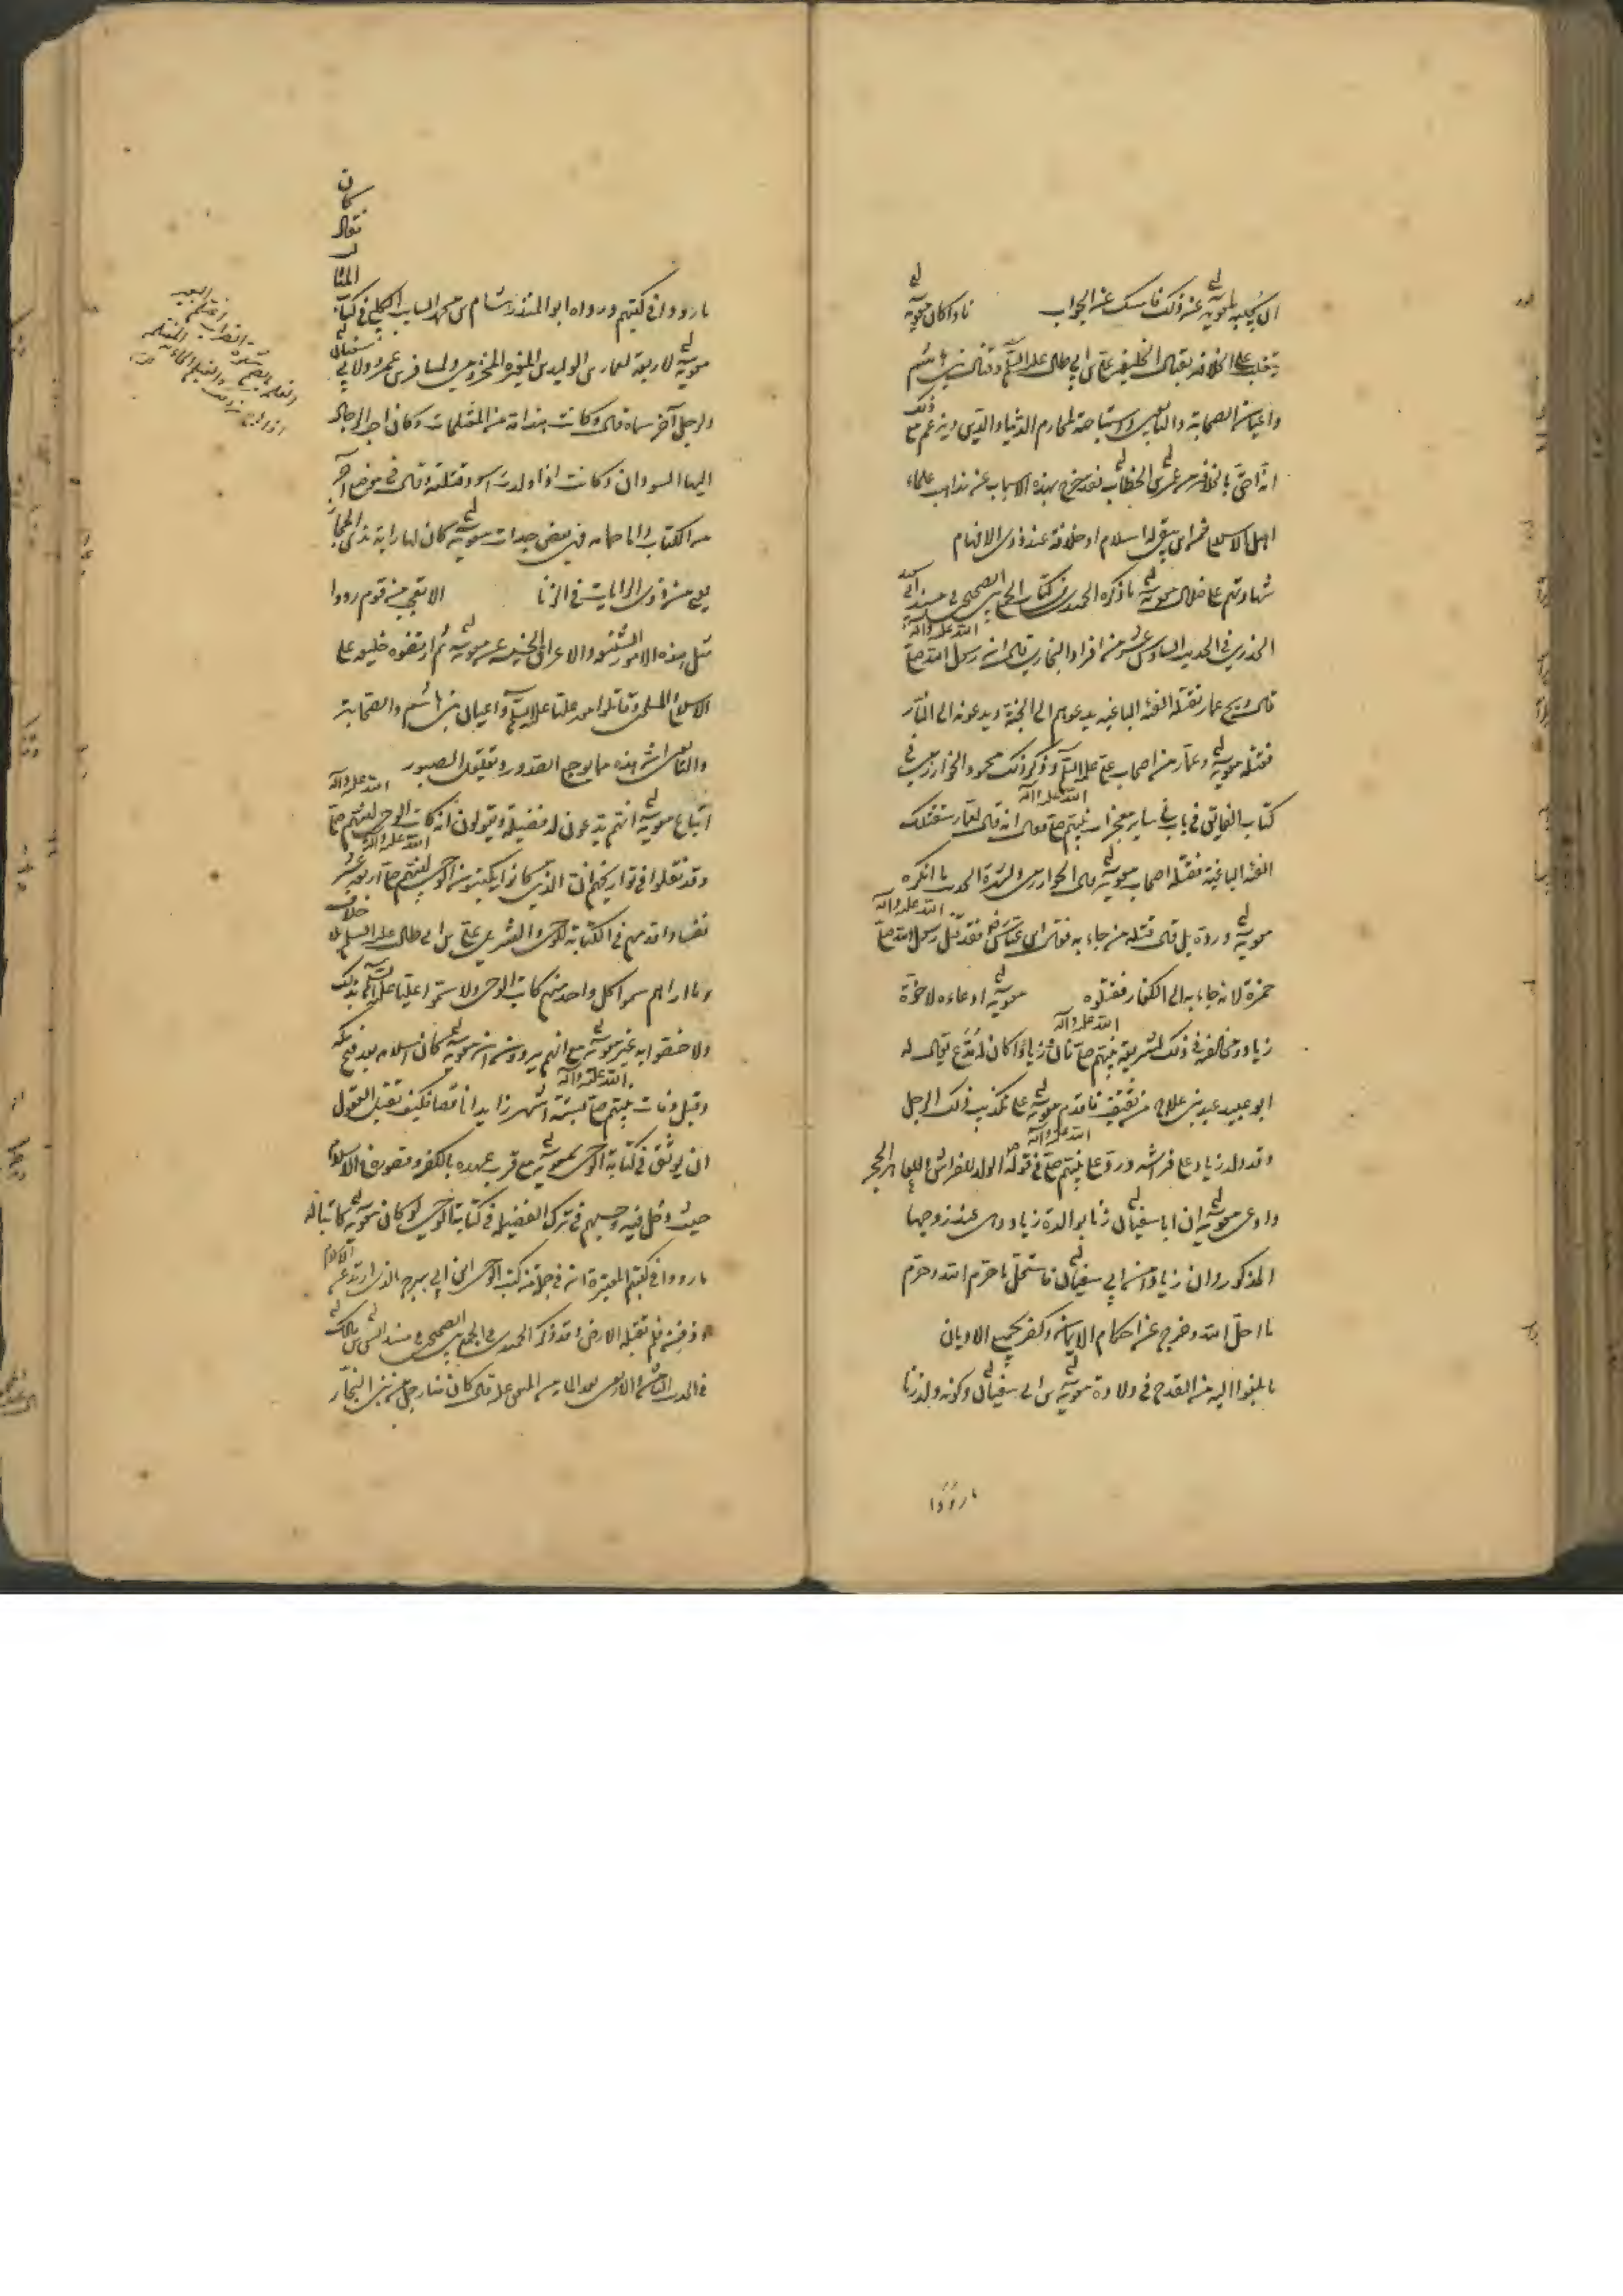 ان يجيبه لمعوية عن ذلك فامسك عن الجواب فاذا كان معوية
على الخلافة بقتال الخليفة علي بن ابي طالب عليه السلم وقتال بني هاشم
واعيان الصحابة والتابعين واستباحة المحارم الدنيا والدين ويزعم مع ذلك
انه احق بالخلافة من عمر بن الخطاب فقد خرج بهذه الاسباب عن مذاهب علماء
اهل الاسلام فمن اين يبقى له اسلام او خلافة عند ذوى الافهام
شهادتهم على ضلال معوية ما ذكره الحميدى في كتاب الجمع بين الصحيحين في مسند ابي سعيد
الخدري في الحديث السادس عشر من افراد البخاري قال ان رسول الله صلى الله عليه وآله
قال ويح عمار تقتله الفئة الباغية يدعوهم الى الجنة ويدعونه الى النار
فقتله معوية وعمار من اصحاب علي عليه السلم وذكر ذلك محمود الخوارزمي في
كتاب الفايق في باب في ساير معجزات نبيهم صلى الله عليه وآله انه قال لعمار ستقتلك
الفئة الباغية فقتله اصحاب معوية قال الخوارزمى ولشهرة الحديث ما انكره
معوية ورده بل قال قتله من جاء به فقال ابن عباس فقد قتل رسول الله صلى الله عليه وآله
حمزة لانه جاء به الى الكفار فقتلوه معوية ادعاءه لاخوة
زياد ومخالفة في ذلك لشريعة نبيهم صلى الله عليه وآله فان زيادا كان له مدع يقال له
ابو عبيد عبد بني علاج من ثقيف فاقدم معوية على تكذيب ذلك الرجل
وقد ولد زياد على فراشه ورد على نبيهم صلى الله عليه وآله في قوله الولد للفراش وللعاهر الحجر
وادعى معوية ان ابا سفيان زنا بوالدة زياد وهى عند زوجها
المذكور وان زيادا من ابي سفيان فاستحل ما حرم الله وحرم
ما احل الله وخرج عن احكام الايمان وكفر بجميع الاديان
ما بلغوا اليه من القدح في ولادة معوية بن ابي سفيان وكونه ولد زنا
ما رووا
كان
فقال
المثا
ما رووا في كتبهم ورواه ابو المنذر هشام بن محمد السايب الكلبي في كتاب
معوية لاربعة لعمارة بن الوليد بن المغيرة المخزومي ولمسافر بن عمرو ولابي سفيان
ولرجل آخر سماه قال وكانت هند امه من المغتلمات وكان احب الرجال
اليها السودان وكانت اذا ولدت اسود قتلته وقال في موضع آخر
من الكتاب واما حمامة فهي بعض جدات معوية كان لها راية بذى المجاز
يعنى من ذوى الرايات في الزنا الا تعجب من قوم رووا
مثل هذه الامور الشنيعة والاعراق الخبيثة عن معوية ثم ارتضوه خليفة على
الاسلام والمسلمين وقاتلوا معه عليا عليه السلم واعيان بني هاشم والصحابة
والتابعين ان هذه مما يوجع الصدور وتقبل الصبور
اتباع معوية انهم يدعون له فضيلة ويقولون انه كاتب الوحى لنبيهم صلى الله عليه وآله
وقد نقلوا في تواريخهم ان الذين كانوا يكتبون الوحى لنبيهم صلى الله عليه وآله اربعة عشر
نفسا واقدمهم في الكتابة للوحى والقرآن علي بن ابي طالب عليه السلم بلا خلاف
وما اراهم سموا كل واحد منهم كاتب الوحى ولا سموا عليا عليه السلم بذلك
ولا خصوا به غير معوية مع انهم يروون ان معوية كان اسلامه بعد فتح مكة
وقبل وفات نبيهم صلى الله عليه وآله بستة اشهر زايدا او ناقصا فكيف تقبل العقول
ان يوثق في كتابة الوحى بمعوية مع قرب عهده بالكفر وقصوره في الاسلام
حيث دخل فيه وحسبهم في ترك الفضيلة في كتابة الوحى لو كان معوية كاتبا له
ما رووا في كتبهم المعتبرة انه في جملة من كتب الوحى ابن ابي سرح الذى ارتد عن الاسلام
ودفن فلم تقبله الارض وقد ذكر الحميدى في الجمع بين الصحيحين في مسند انس بن مالك
في الحديث بعد المايه من المتفق عليه قال كان منا رجل من بني النجار